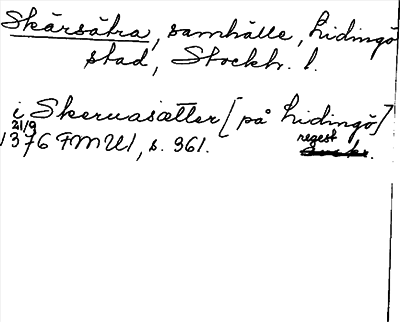 Skärsätra, samhälle, Lidingö
stad, Stockh. l.
i Skeruasætter [på Lidingö]
21/9
1376 FMU I, s. 361. regest.